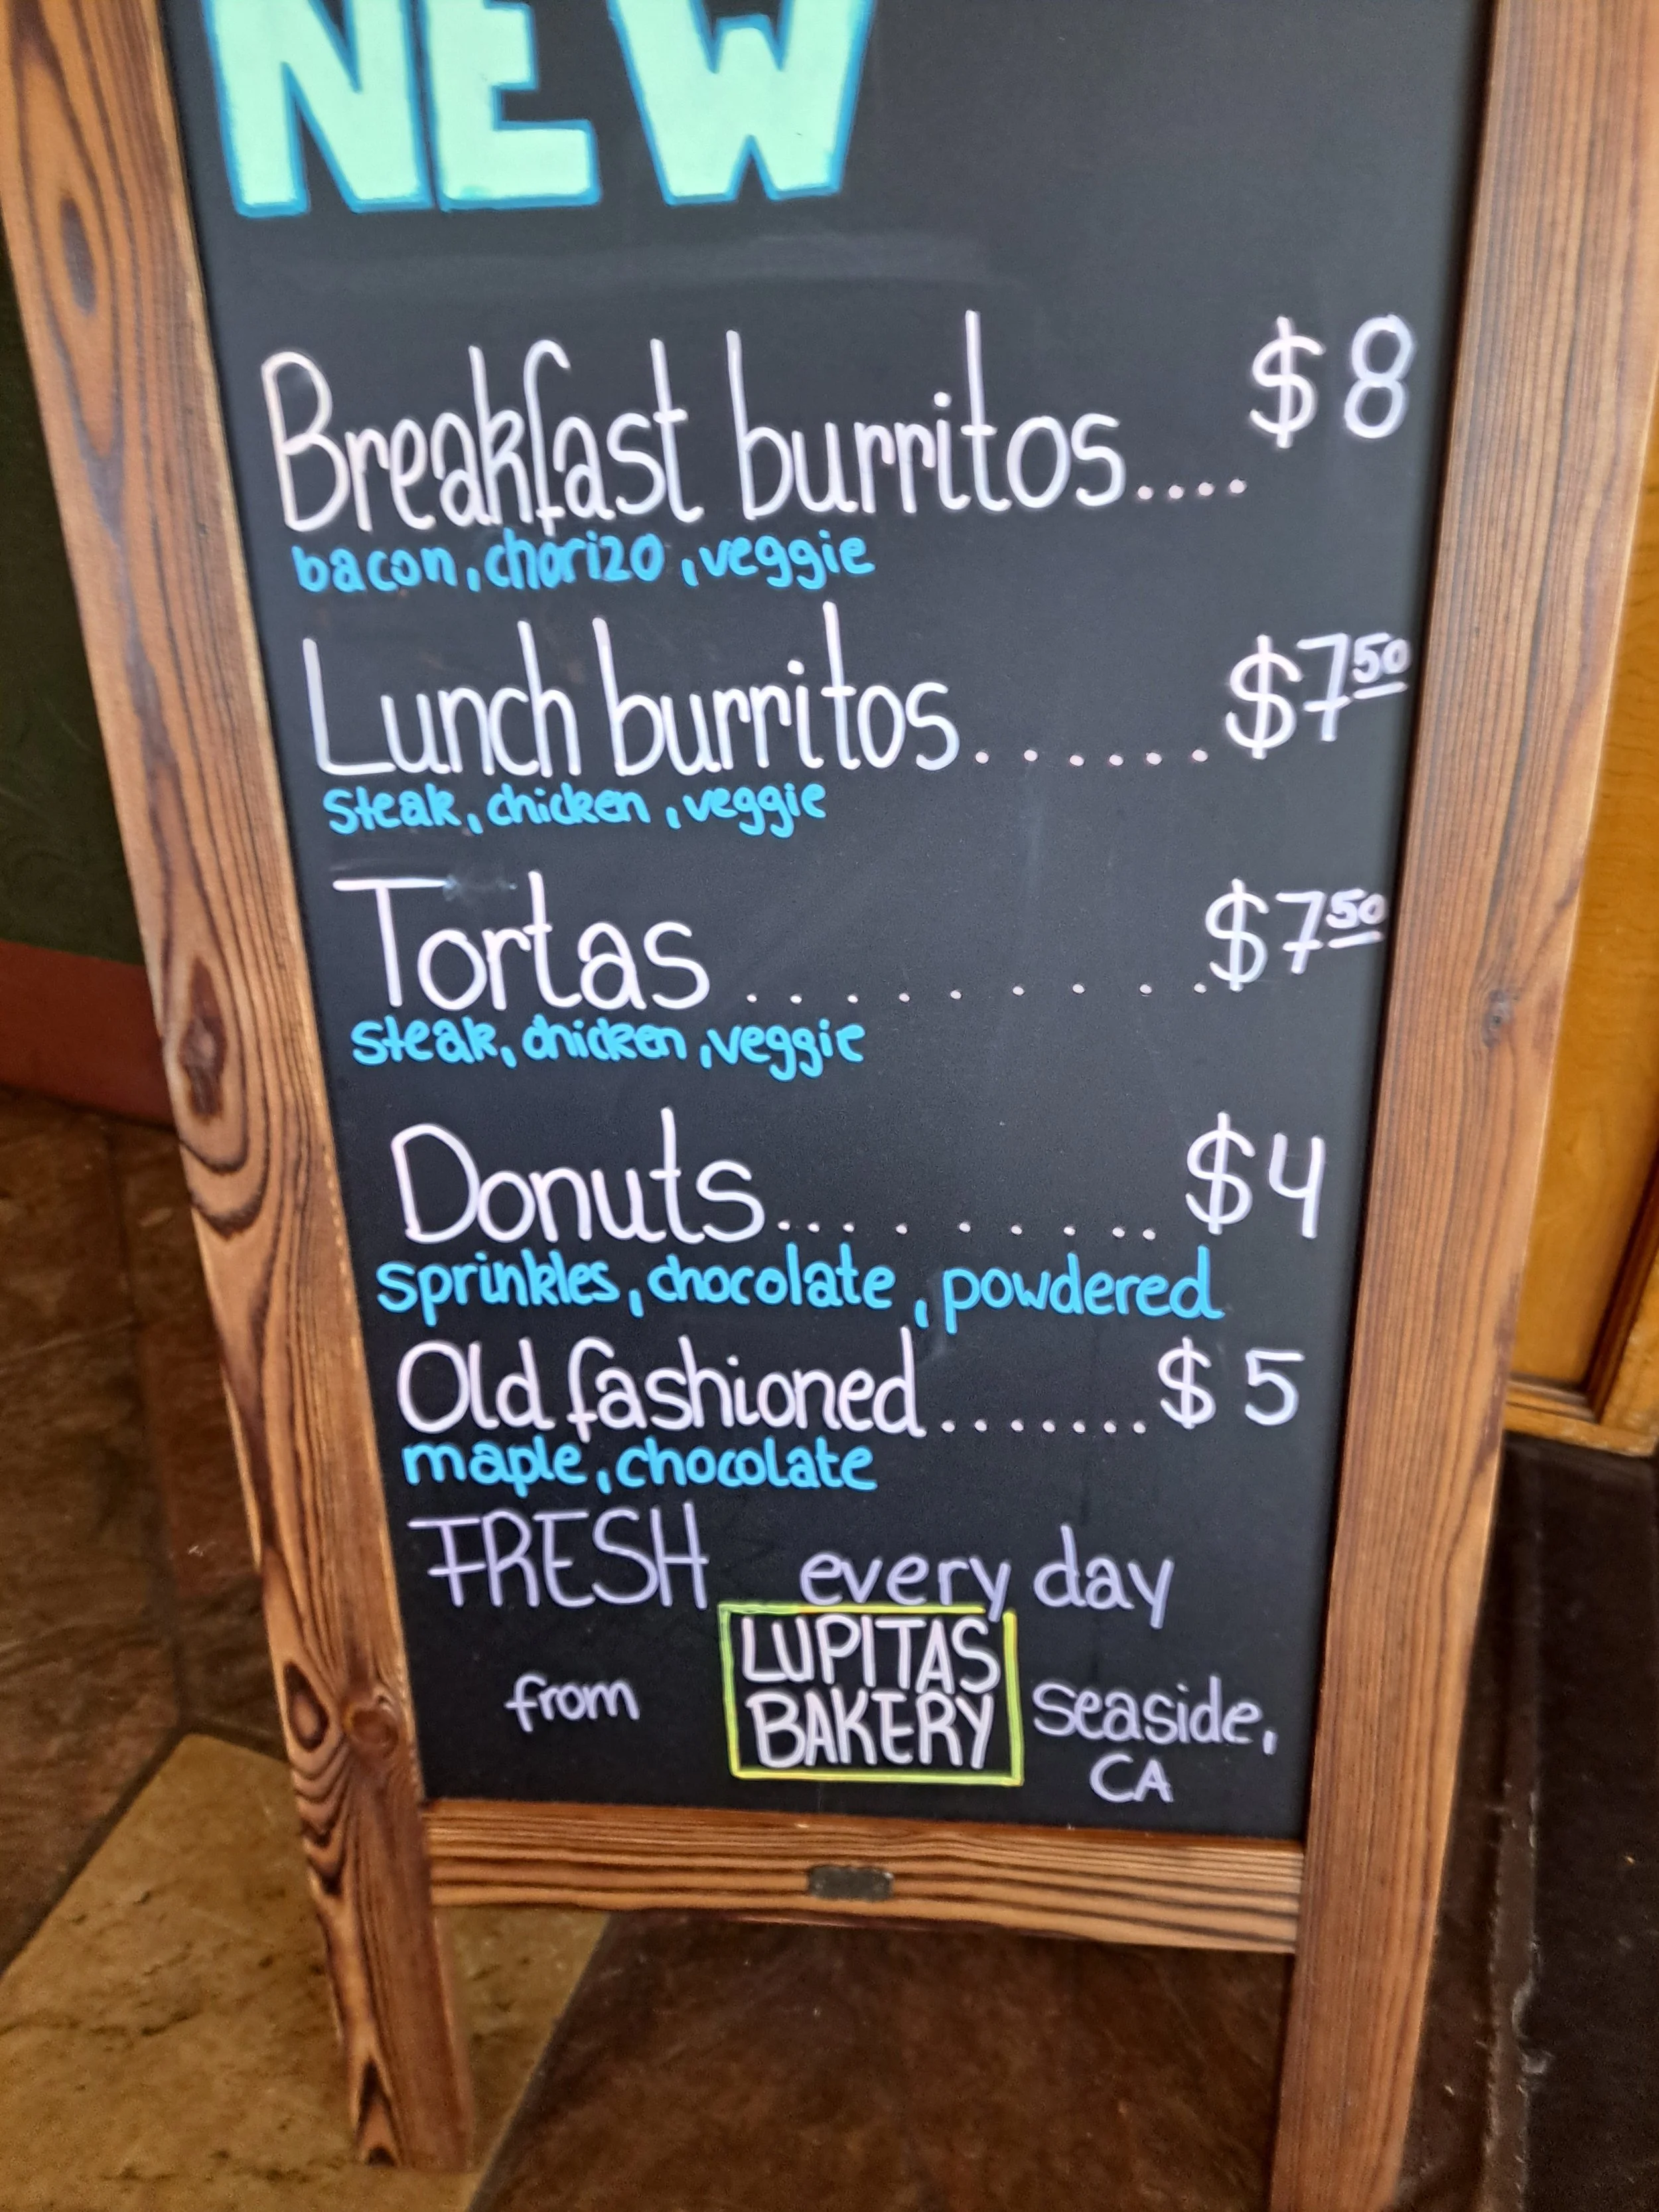 NEW
Breakfast burritos.... $8
bacon, chorizo, veggie
Lunch burritos...... $7 50
Steak, chicken, veggie
Tortas ......... $7 50
steak, chicken, veggie
Donuts......... $4
sprinkles, chocolate, powdered
Old fashioned....... $5
maple, chocolate
FRESH every day
from LUPITAS BAKERY seaside, CA